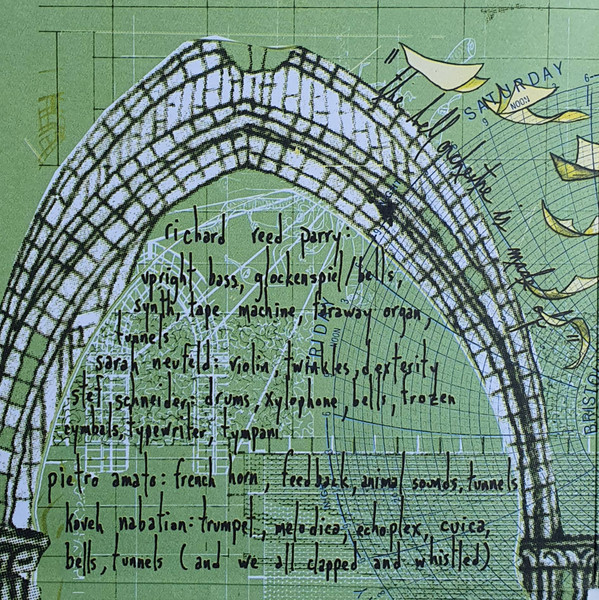 "the bell orchestre is made of"
SATURDAY
NOON
9
6
richard reed parry:
upright bass, glockenspiel/bells,
synth, tape machine, faraway organ,
tunnels
sarah neufeld: violin, twinkles, dexterity
stef schneider: drums, xylophone, bells, frozen
cymbals, typewriter, tympani
pietro amato: french horn, feedback, animal sounds, tunnels
kaveh nabatian: trumpet, melodica, echoplex, cuica,
bells, tunnels (and we all clapped and whistled)
RIDAY
NOON
3
6
BRISTO